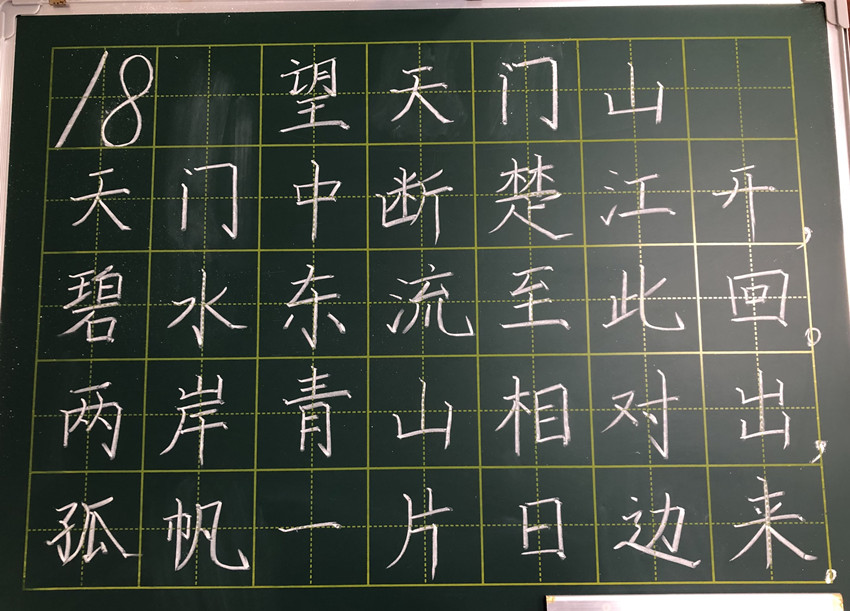 18 望天门山
天门中断楚江开，
碧水东流至此回。
两岸青山相对出，
孤帆一片日边来。